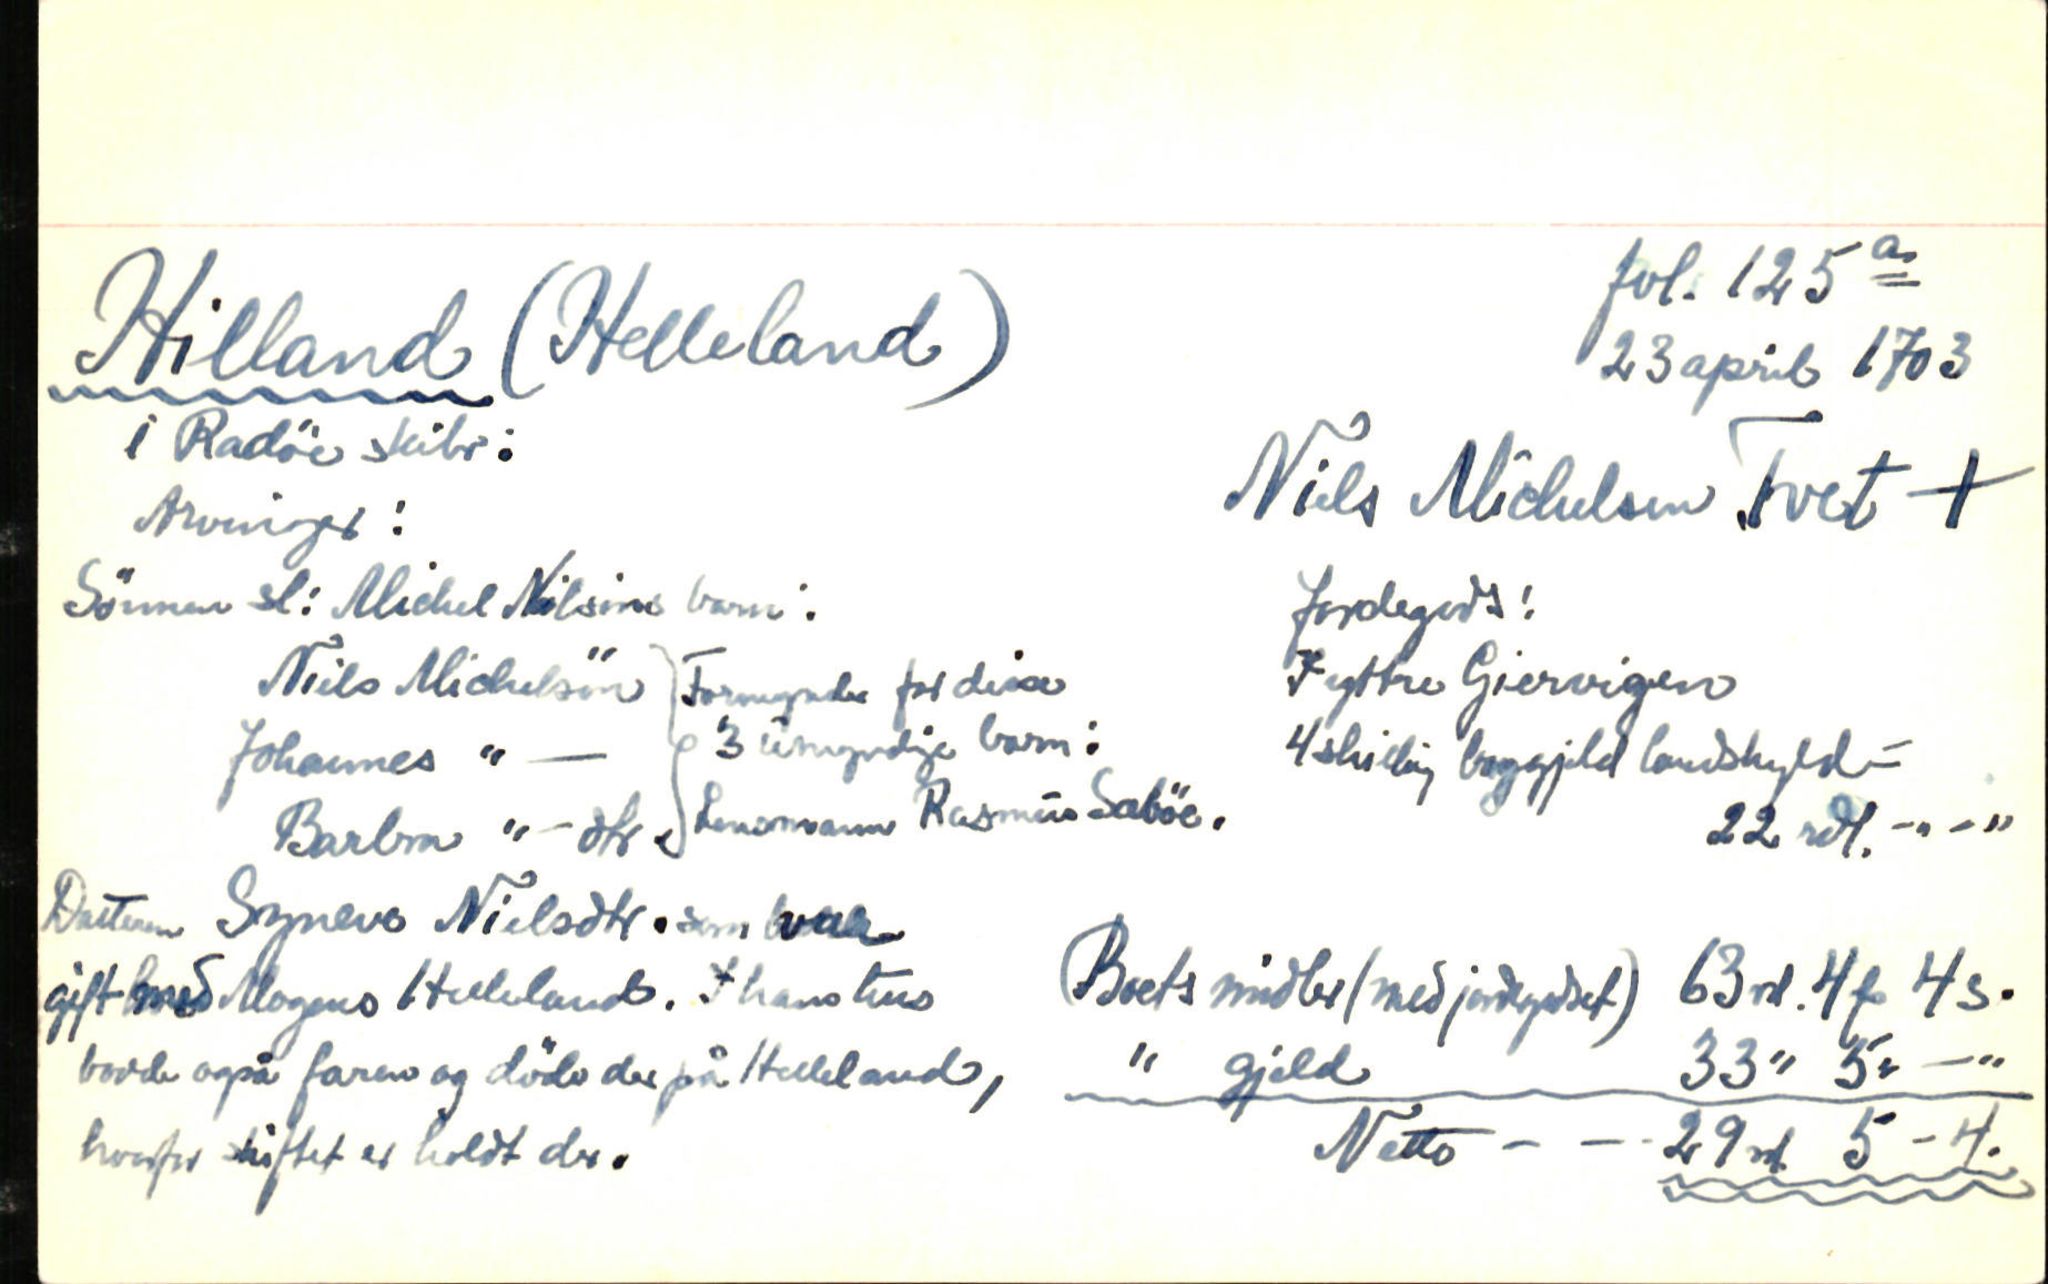 fol. 125 a.
Hilland (Helleland)
23 april 1703
i Radöe skibr:
Niels Michelsen Tvet +
Arvinger:
Sönnen sl: Michel Nilsöns barn:
Niels Michelsön
Johannes " —
Barbra " — dtr.
Formynder for disse
3 umyndige barn:
Lensmann Rasmus Saböe.
Datteren Synevo Nielsdtr. som var
gift med Mogens Helleland. I hans hus
bodde også faren og döde der på Helleland,
hvorfor skiftet er holdt der.
Jordegods:
I yttre Giervigen
4 shilling bøggjeld landskyld =
22 rdl. - " - "
Boets midler (med jordegodset) 63 rd. 4 f 4 s.
" gjeld 33 " 5 " — "
Netto - - - 29 rd. 5 - 4.